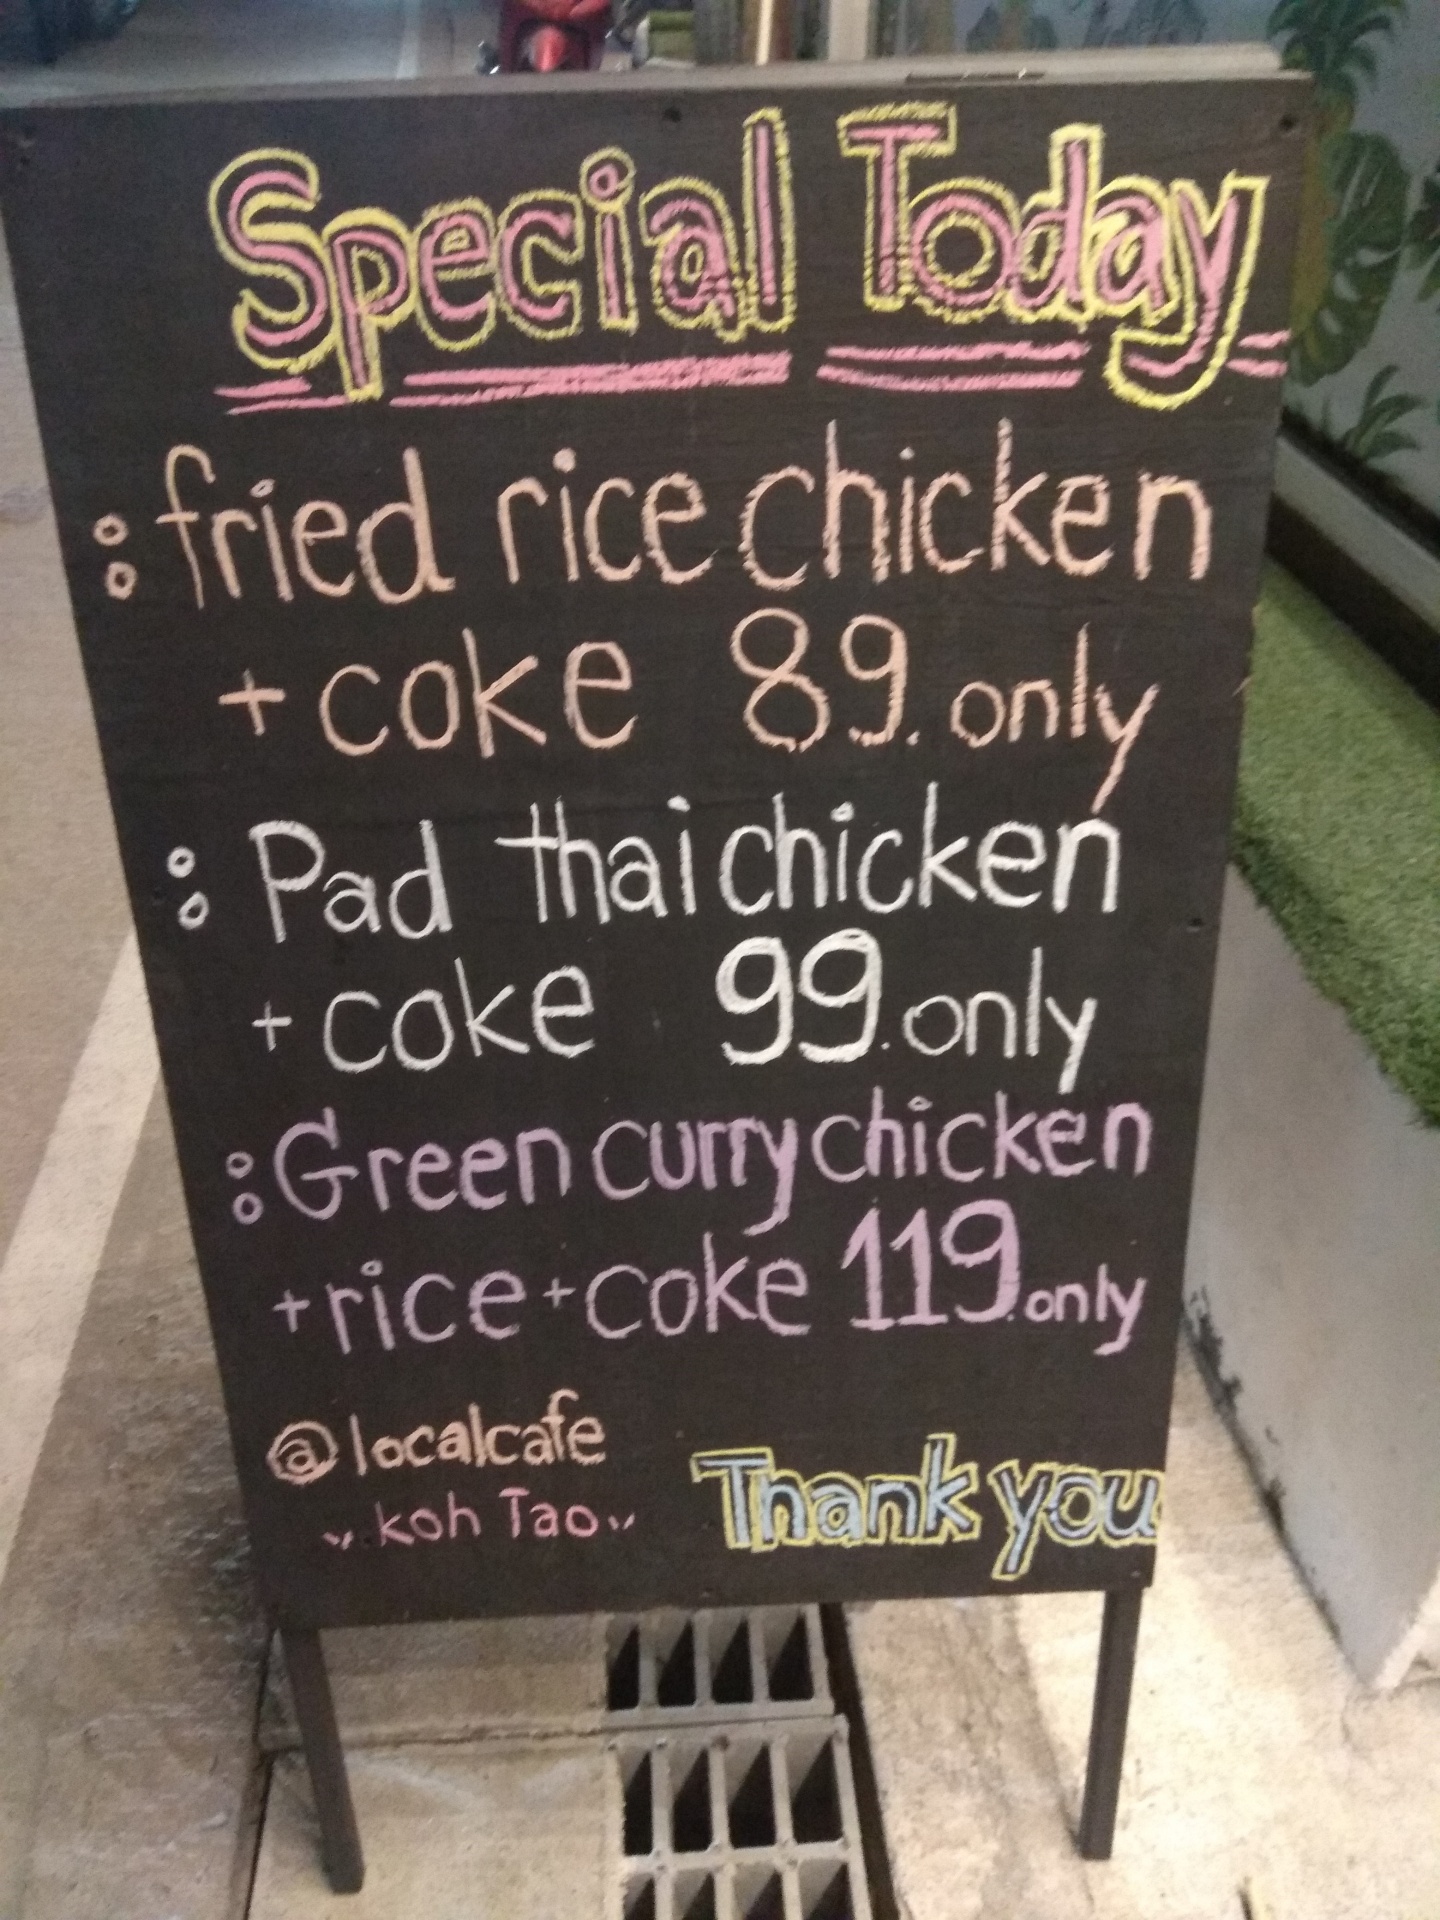 Special Today
: fried rice chicken
+ coke 89. only
: Pad thai chicken
+ coke 99. only
: Green curry chicken
+ rice + coke 119. only
@localcafe
koh Tao
Thank you